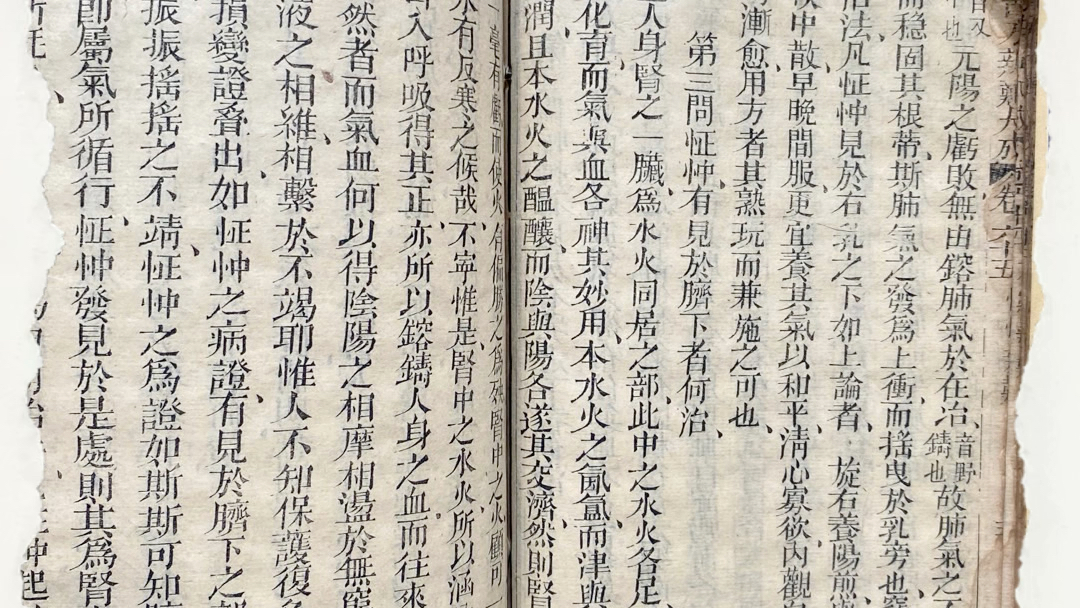 元陽之虧敗無由鎔肺氣於在冶音野鑄也故肺氣之
而穩固其根蒂斯肺氣之發為上衝而搖曳於乳旁也
治法凡怔忡見於右乳之下如上論者旋右養陽煎
中散早晚間服更宜養其氣以和平清心寡欲內觀
漸愈用方者其熟玩而兼施之可也
第三問怔忡有見於臍下者何治
人身腎之一臟爲水火同居之部此中之水火各足
化直而氣與血各神其妙用本水火之氤氳而津與
潤且本水火之醞釀而陰與陽各遂其交濟然則腎
毫有虧而使火有偏勝之爲殃腎中之火
水有反寒之候哉不寧惟是腎中之水火所以涵
入呼吸得其正亦所以鎔鑄人身之血而往來
然者而氣血何以得陰陽之相摩相盪於無
液之相維相繫於不竭耶惟人不知保護復
損變證叠出如怔忡之病證有見於臍下之
振振搖搖之不靖怔忡之爲證如斯斯可知
即屬氣所循行怔忡發見於是處則其爲腎